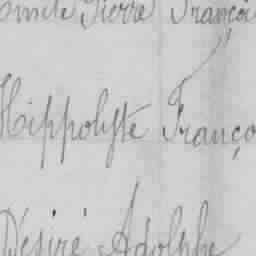 Emile Pierre Françoi
Hippolyte Franço
Désiré Adolphe